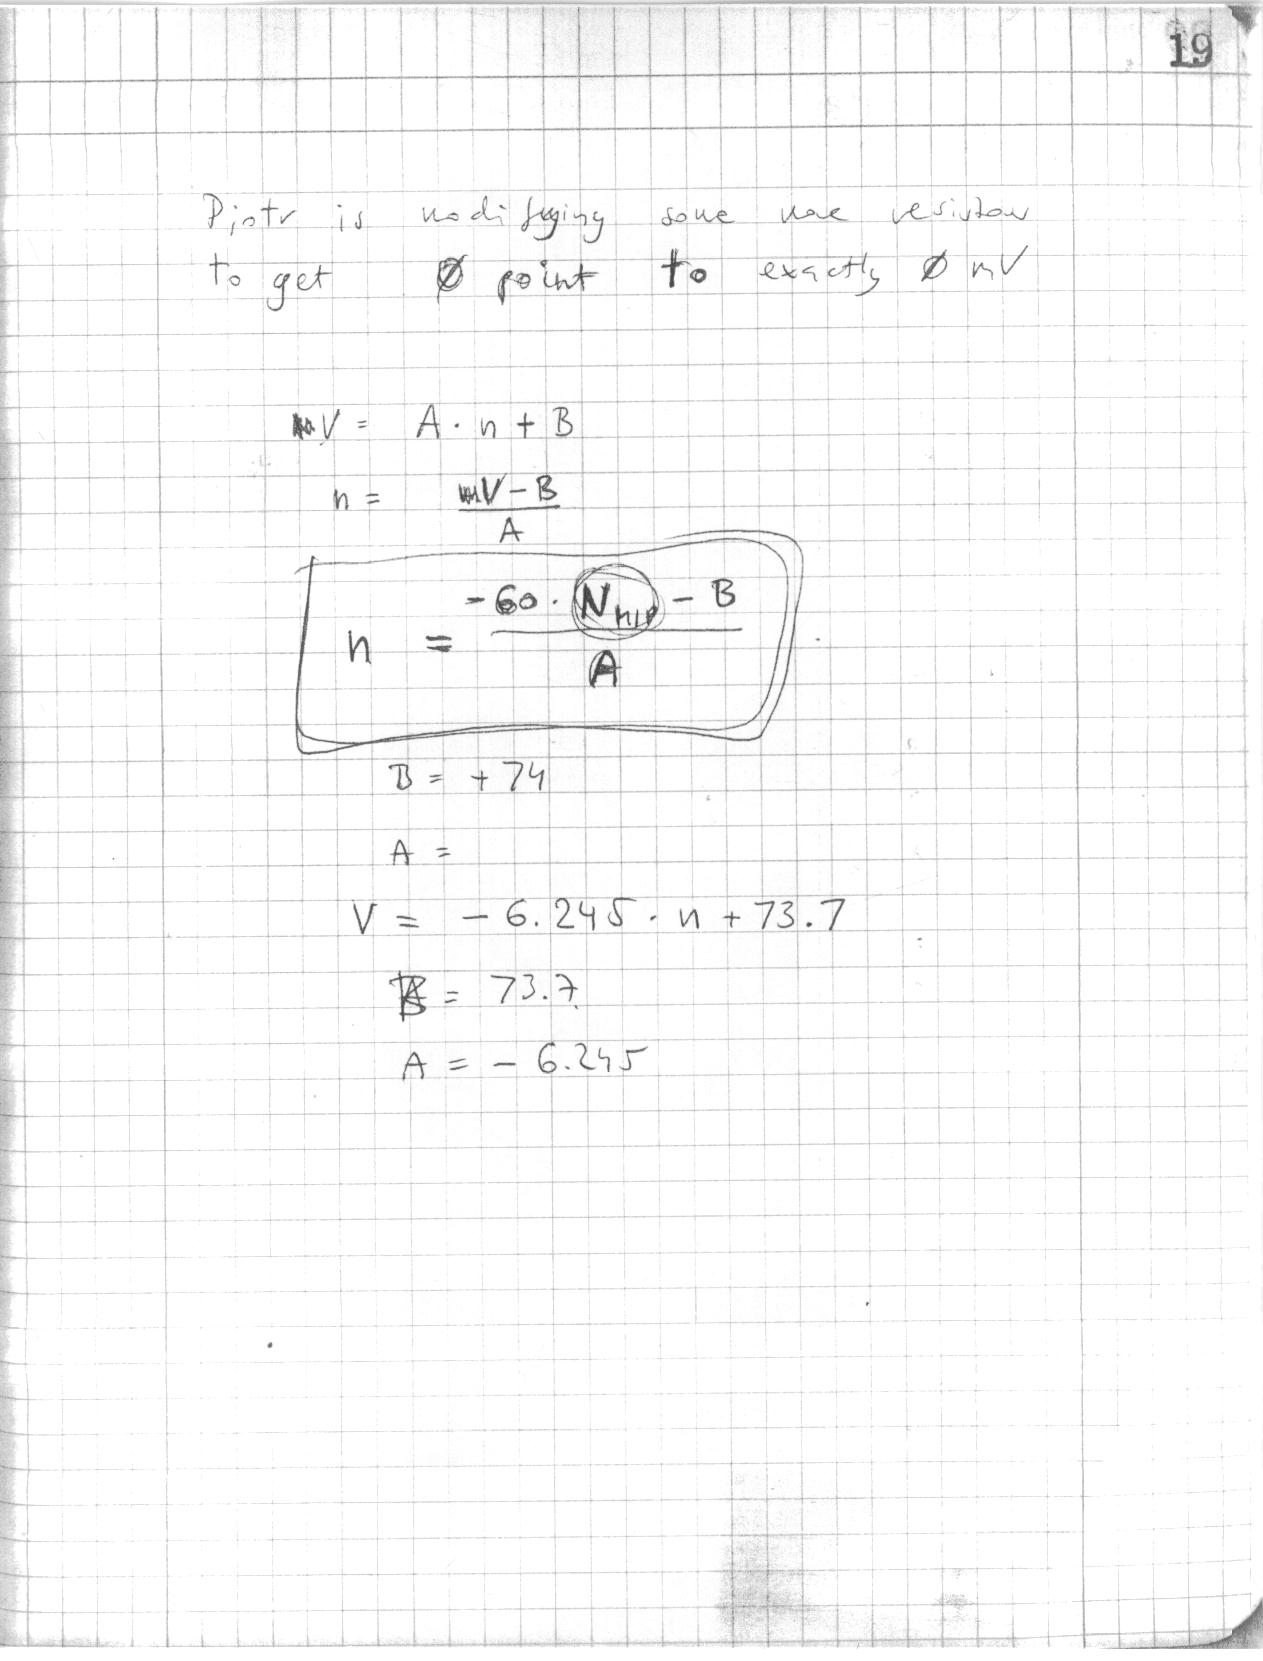 19
Piotr is modifying some more resistor
to get Ø point to exactly Ø mV
mV = A · n + B
n = mV - B / A
n = -60 · N_MIP - B / A
B = + 74
A =
V = - 6.245 · n + 73.7
B = 73.7
A = - 6.245